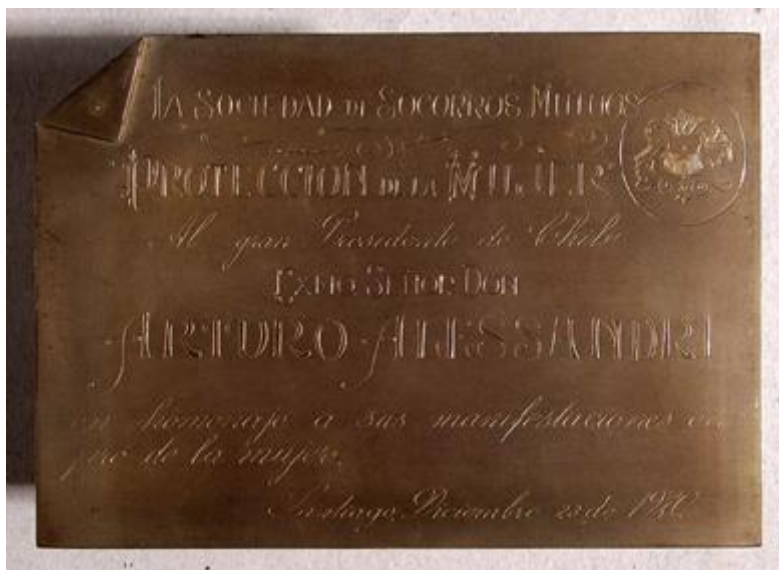 LA SOCIEDAD DE SOCORROS MUTUOS
"PROTECCION DE LA MUJER"
Al gran Presidente de Chile
EXMO SEÑOR DON
ARTURO ALESSANDRI
en homenaje a sus manifestaciones en
pro de la mujer.
Santiago, Diciembre 23 de